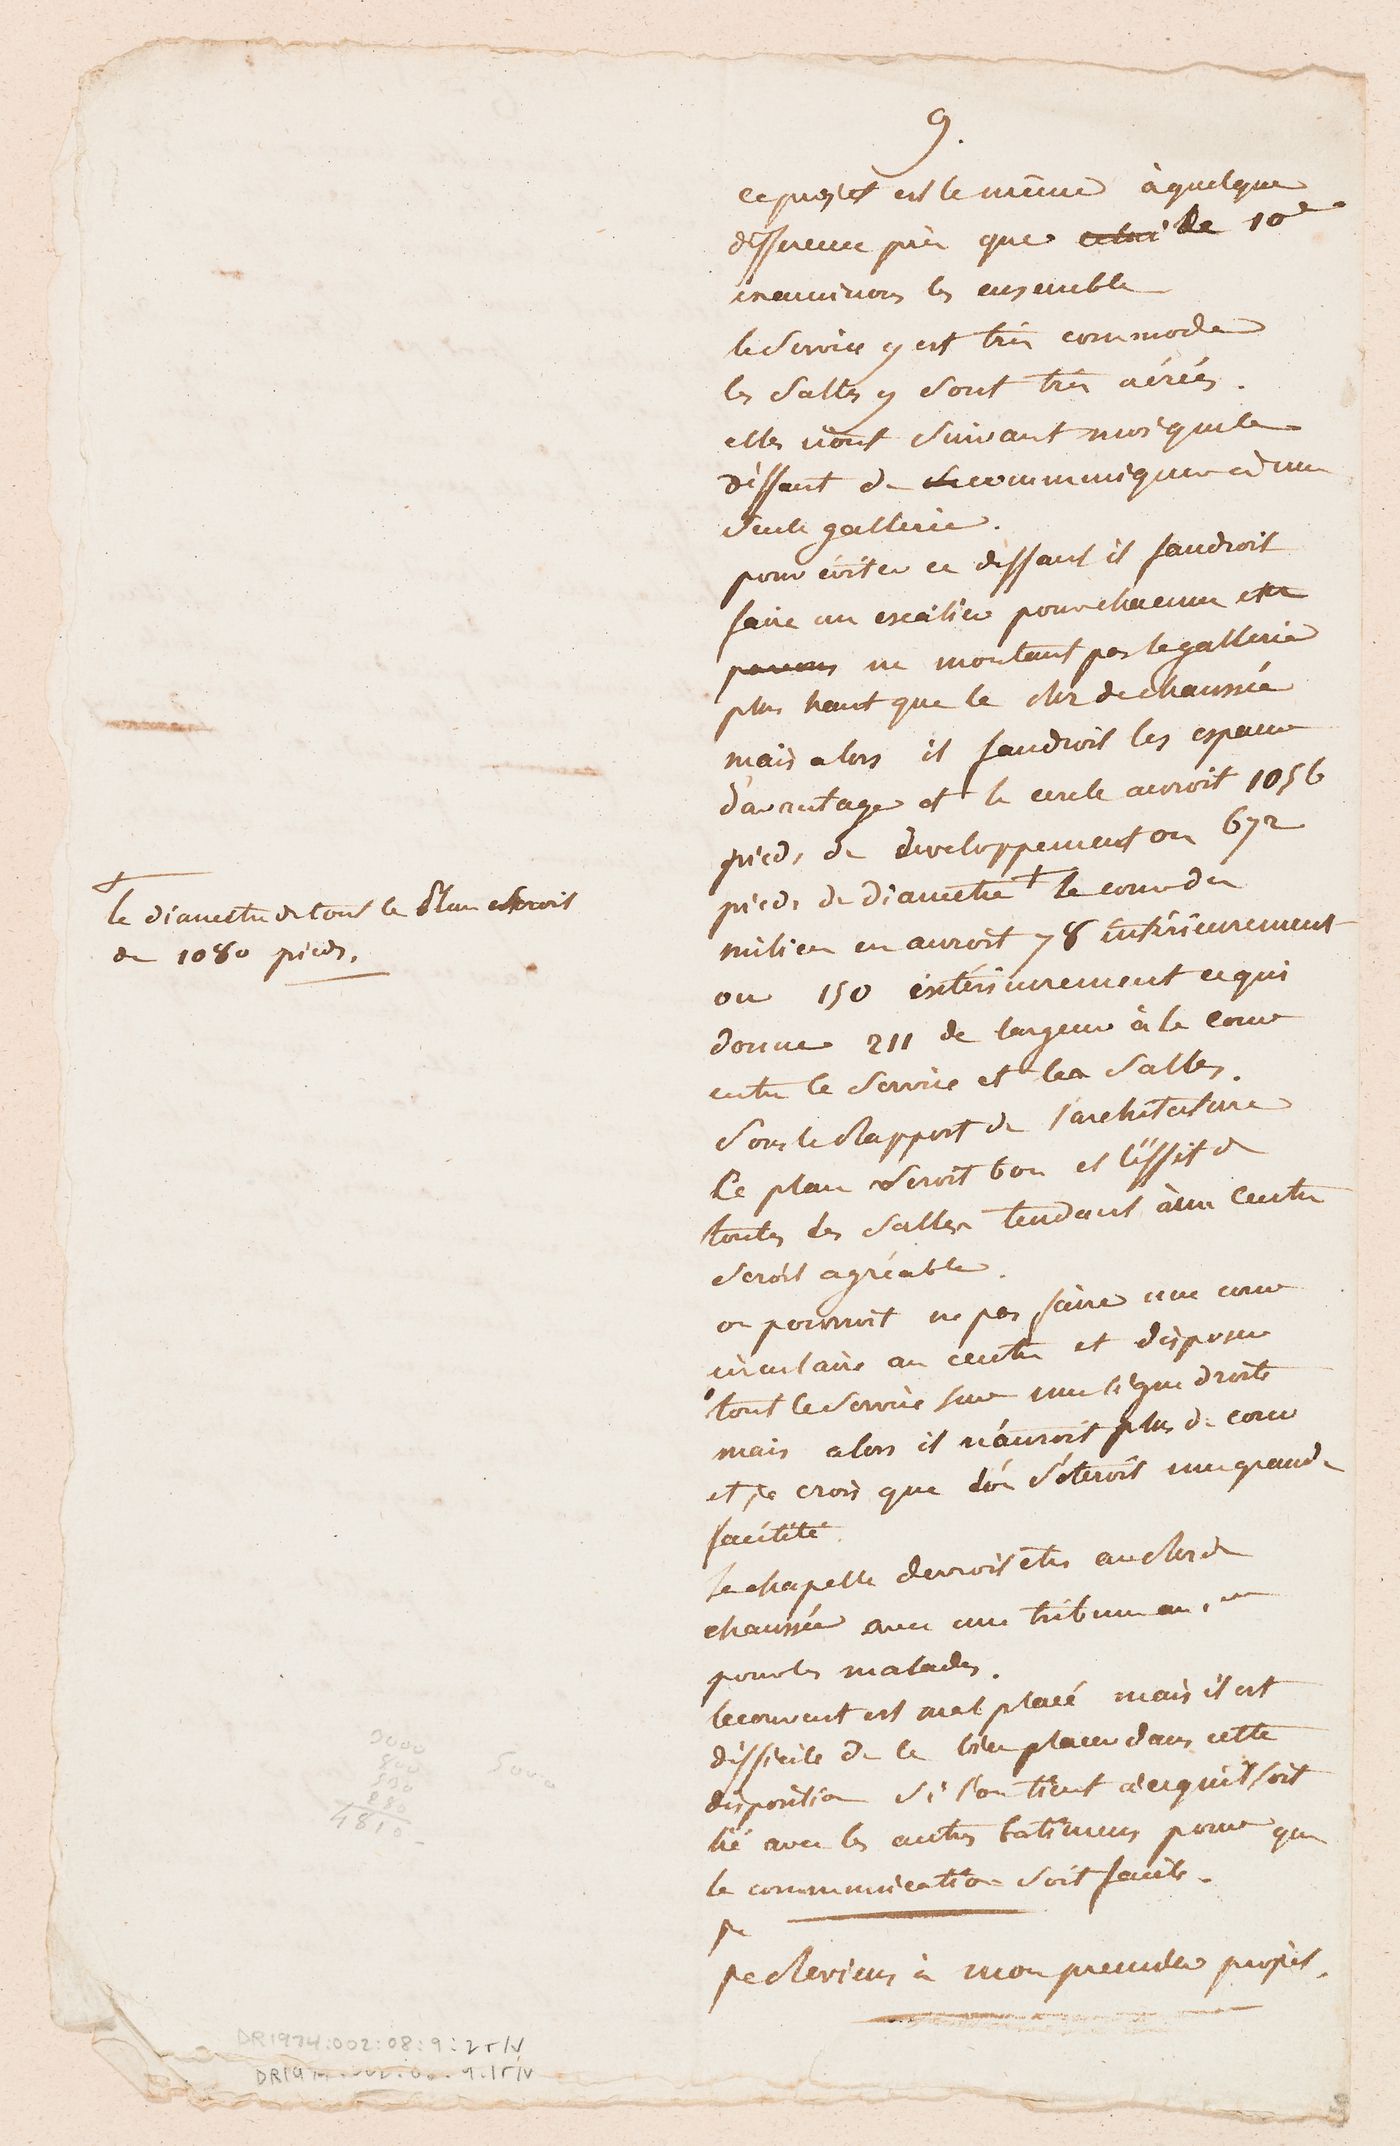 9.
ce projet est le même à quelque
différence près que celui de 10e
examinons les ensemble
le service y est très commode
les salles y sont très aérées.
elles n'ont suivant moi que le
déffaut de se communiquer à une
seule gallerie.
pour éviter ce déffaut il faudroit
faire un escalier pour chacune et
ne montant par la gallerie
plus haut que le rez de chaussée
mais alors il faudroit les espacer
d'avantage et le cercle auroit 1056
pieds de developpement ou 672
pieds de diametre + la cour du
milieu en auroit 78 intérieurement
ou 150 extérieurement ce qui
donne 211 de largeur à la cour
entre le service et les salles.
sous le rapport de l'architecture
ce plan seroit bon et l'éffet de
toutes les salles tendant à un centre
seroit agréable.
on pourroit ne pas faire une cour
circulaire au centre et disposer
tout le service sur une ligne droite
mais alors il n'auroit plus de cour
et je crois que s'oteroit une grande
facilité.
la chapelle devroit être au rez de
chaussée avec une tribune au
pour les malades.
le couvent est mal placé mais il est
difficile de le bien placer dans cette
disposition si l'on tient à ce qu'il soit
lié avec les autres batimens pour que
la communication soit facile.
je
je reviens à mon premier projet.
+
le diametre de tout le plan seroit
de 1080 pieds.
3000
800
130
880
4810
5000
DR1974:002:08:9:2r/v